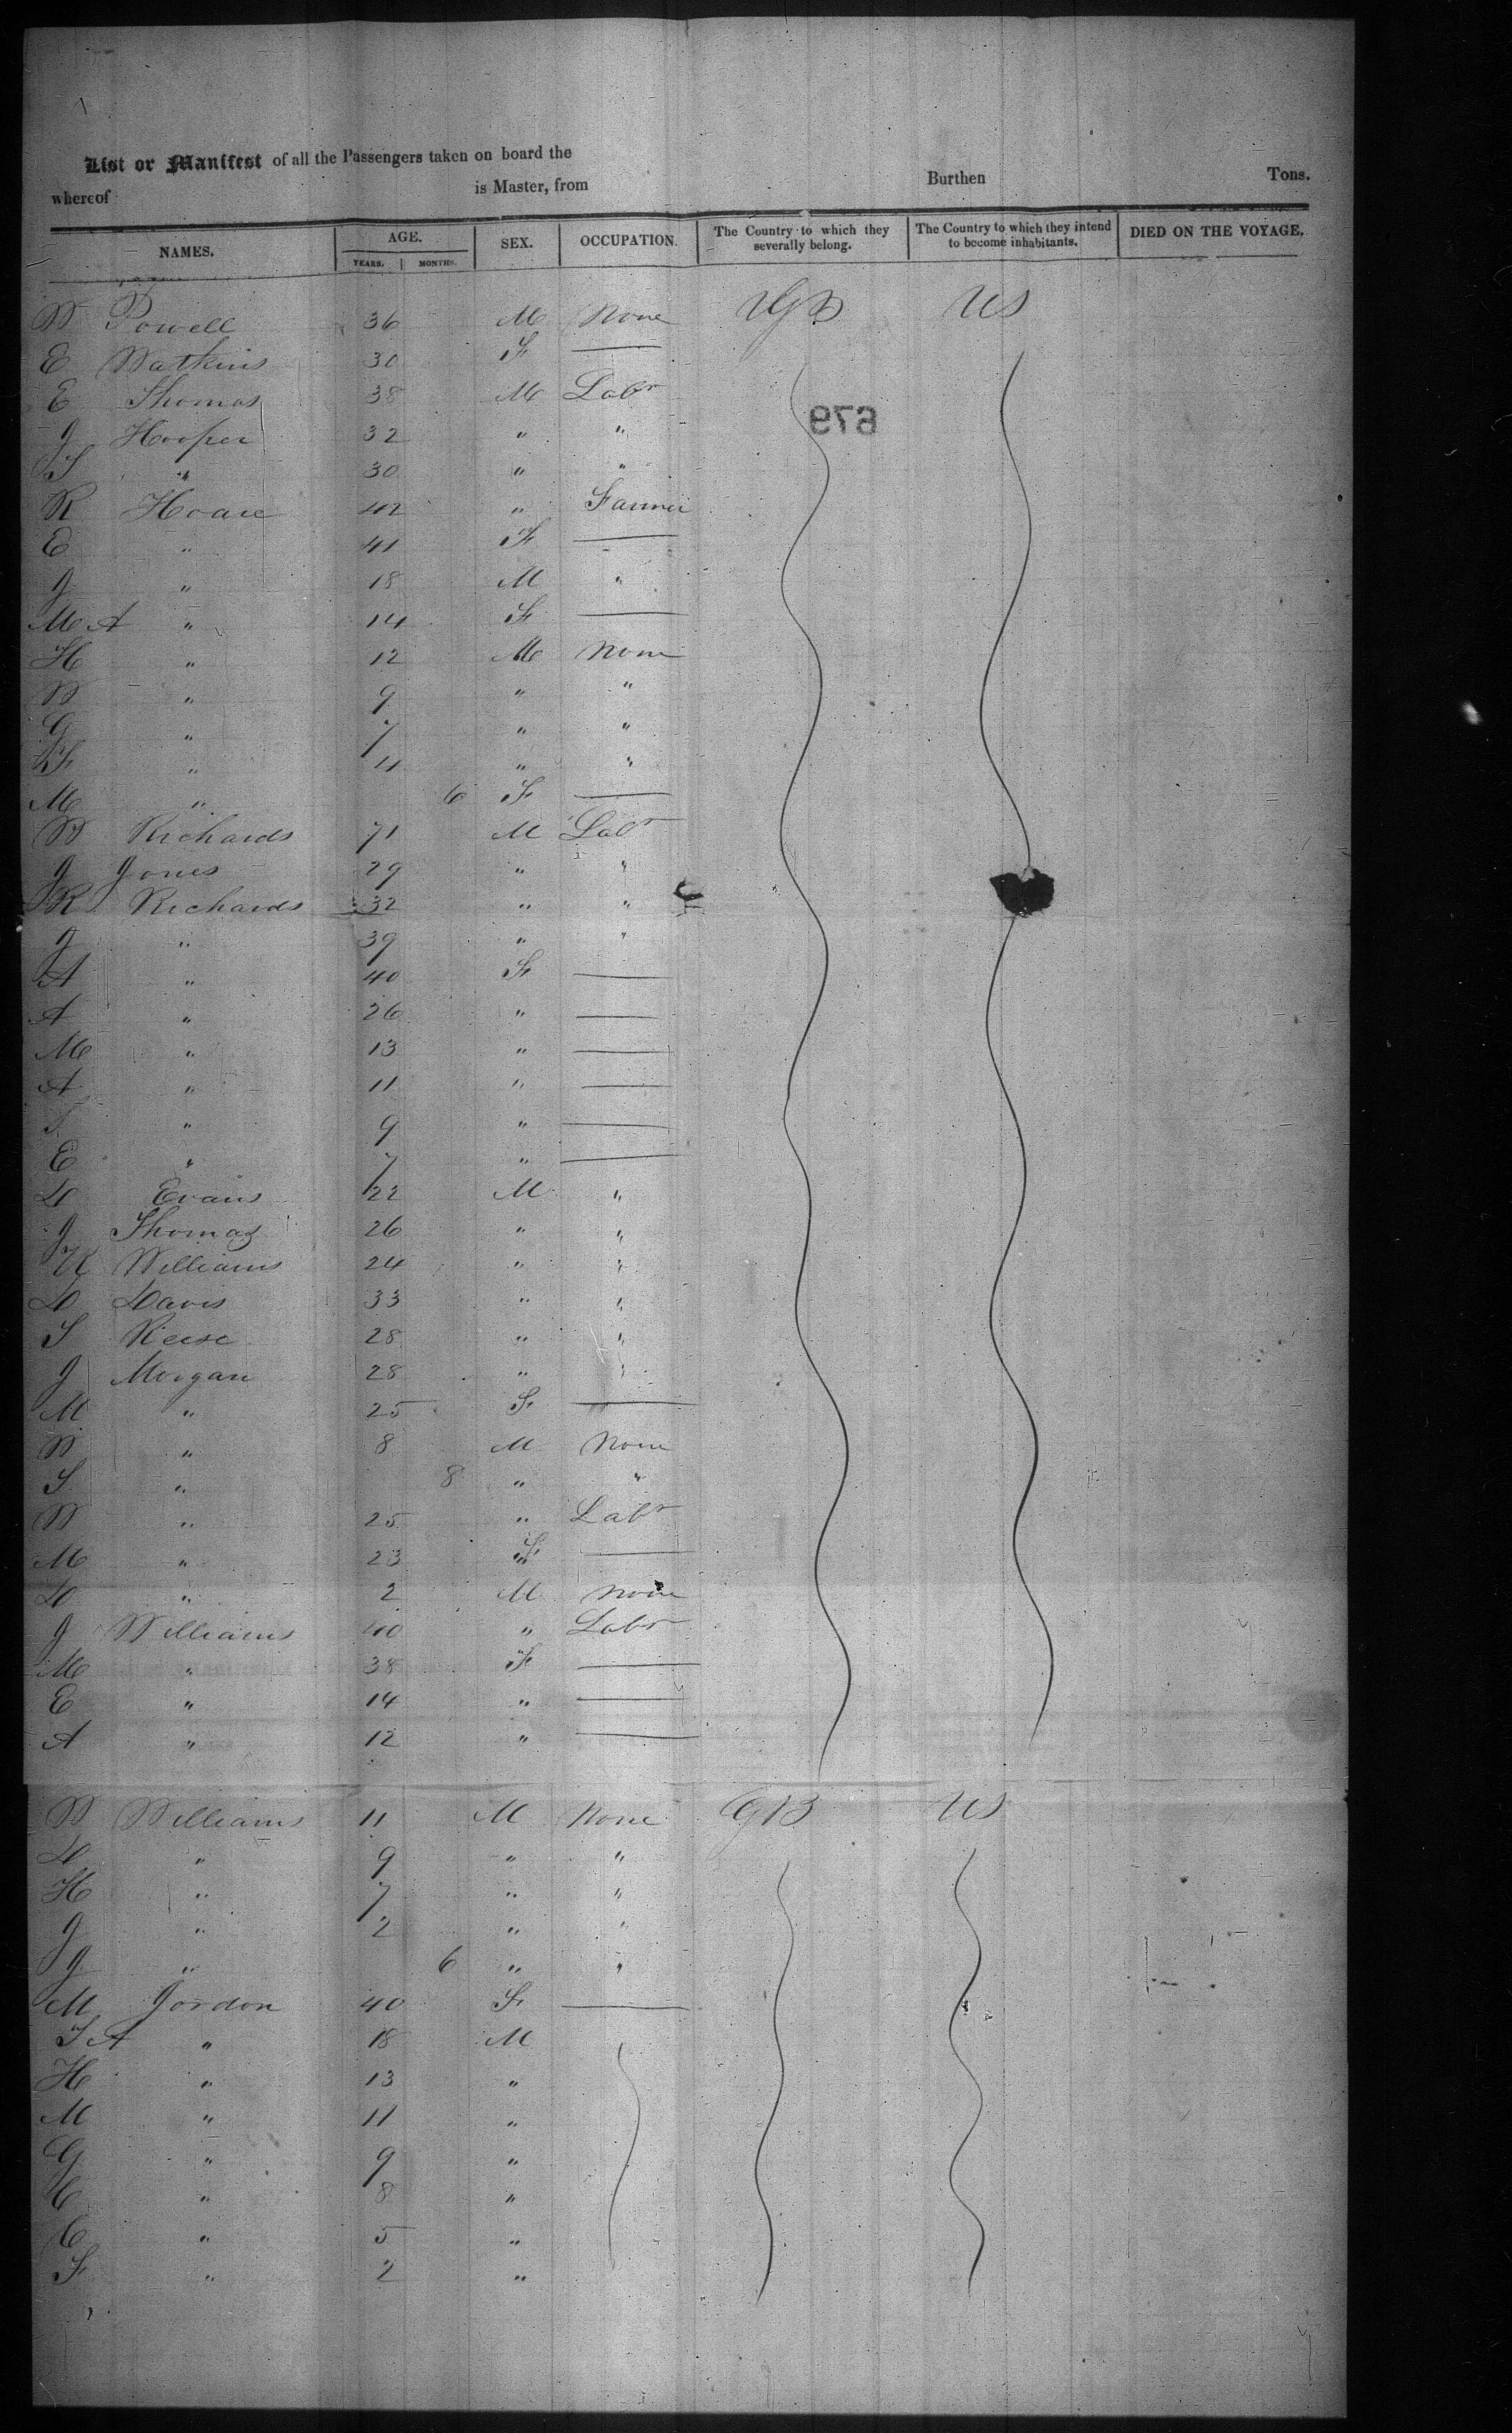 List or Manifest of all the Passengers taken on board the
whereof is Master, from Burthen Tons.
NAMES. AGE. SEX. OCCUPATION. The Country to which they severally belong. The Country to which they intend to become inhabitants. DIED ON THE VOYAGE.
YEARS. MONTHS.
W Powell 36 M None GB US
E Watkins 30 F —
E Thomas 38 M Labr
J Hooper 32 " "
S " 30 " "
R Hoare 42 " Farmer
E " 41 F —
J " 18 M "
M A " 14 F —
H " 12 M None
W " 9 " "
G " 7 " "
F " 4 " "
M " 6 F —
W Richards 71 M Labr
J Jones 29 " "
R Richards 32 " "
J " 39 " "
A " 40 F —
A " 26 " —
M " 13 " —
A " 11 " —
S " 9 " —
E " 7 " —
D Evans 22 M "
J Thomas 26 " "
Williams 24 " "
D Davis 33 " "
S Reese 28 " "
J Morgan 28 " "
M " 25 F —
W " 8 M None
S " 8 " "
W " 25 " Labr
M " 23 F —
D " 2 M None
J Williams 40 " Labr
M " 38 F —
E " 14 " —
A " 12 " —
W Williams 11 M None GB US
D " 9 " "
H " 7 " "
J " 2 " "
J " 6 " "
M Jordon 40 F —
S A " 18 M
H " 13 "
M " 11 "
G " 9 "
C " 8 "
C " 5 "
F " 2 "
679